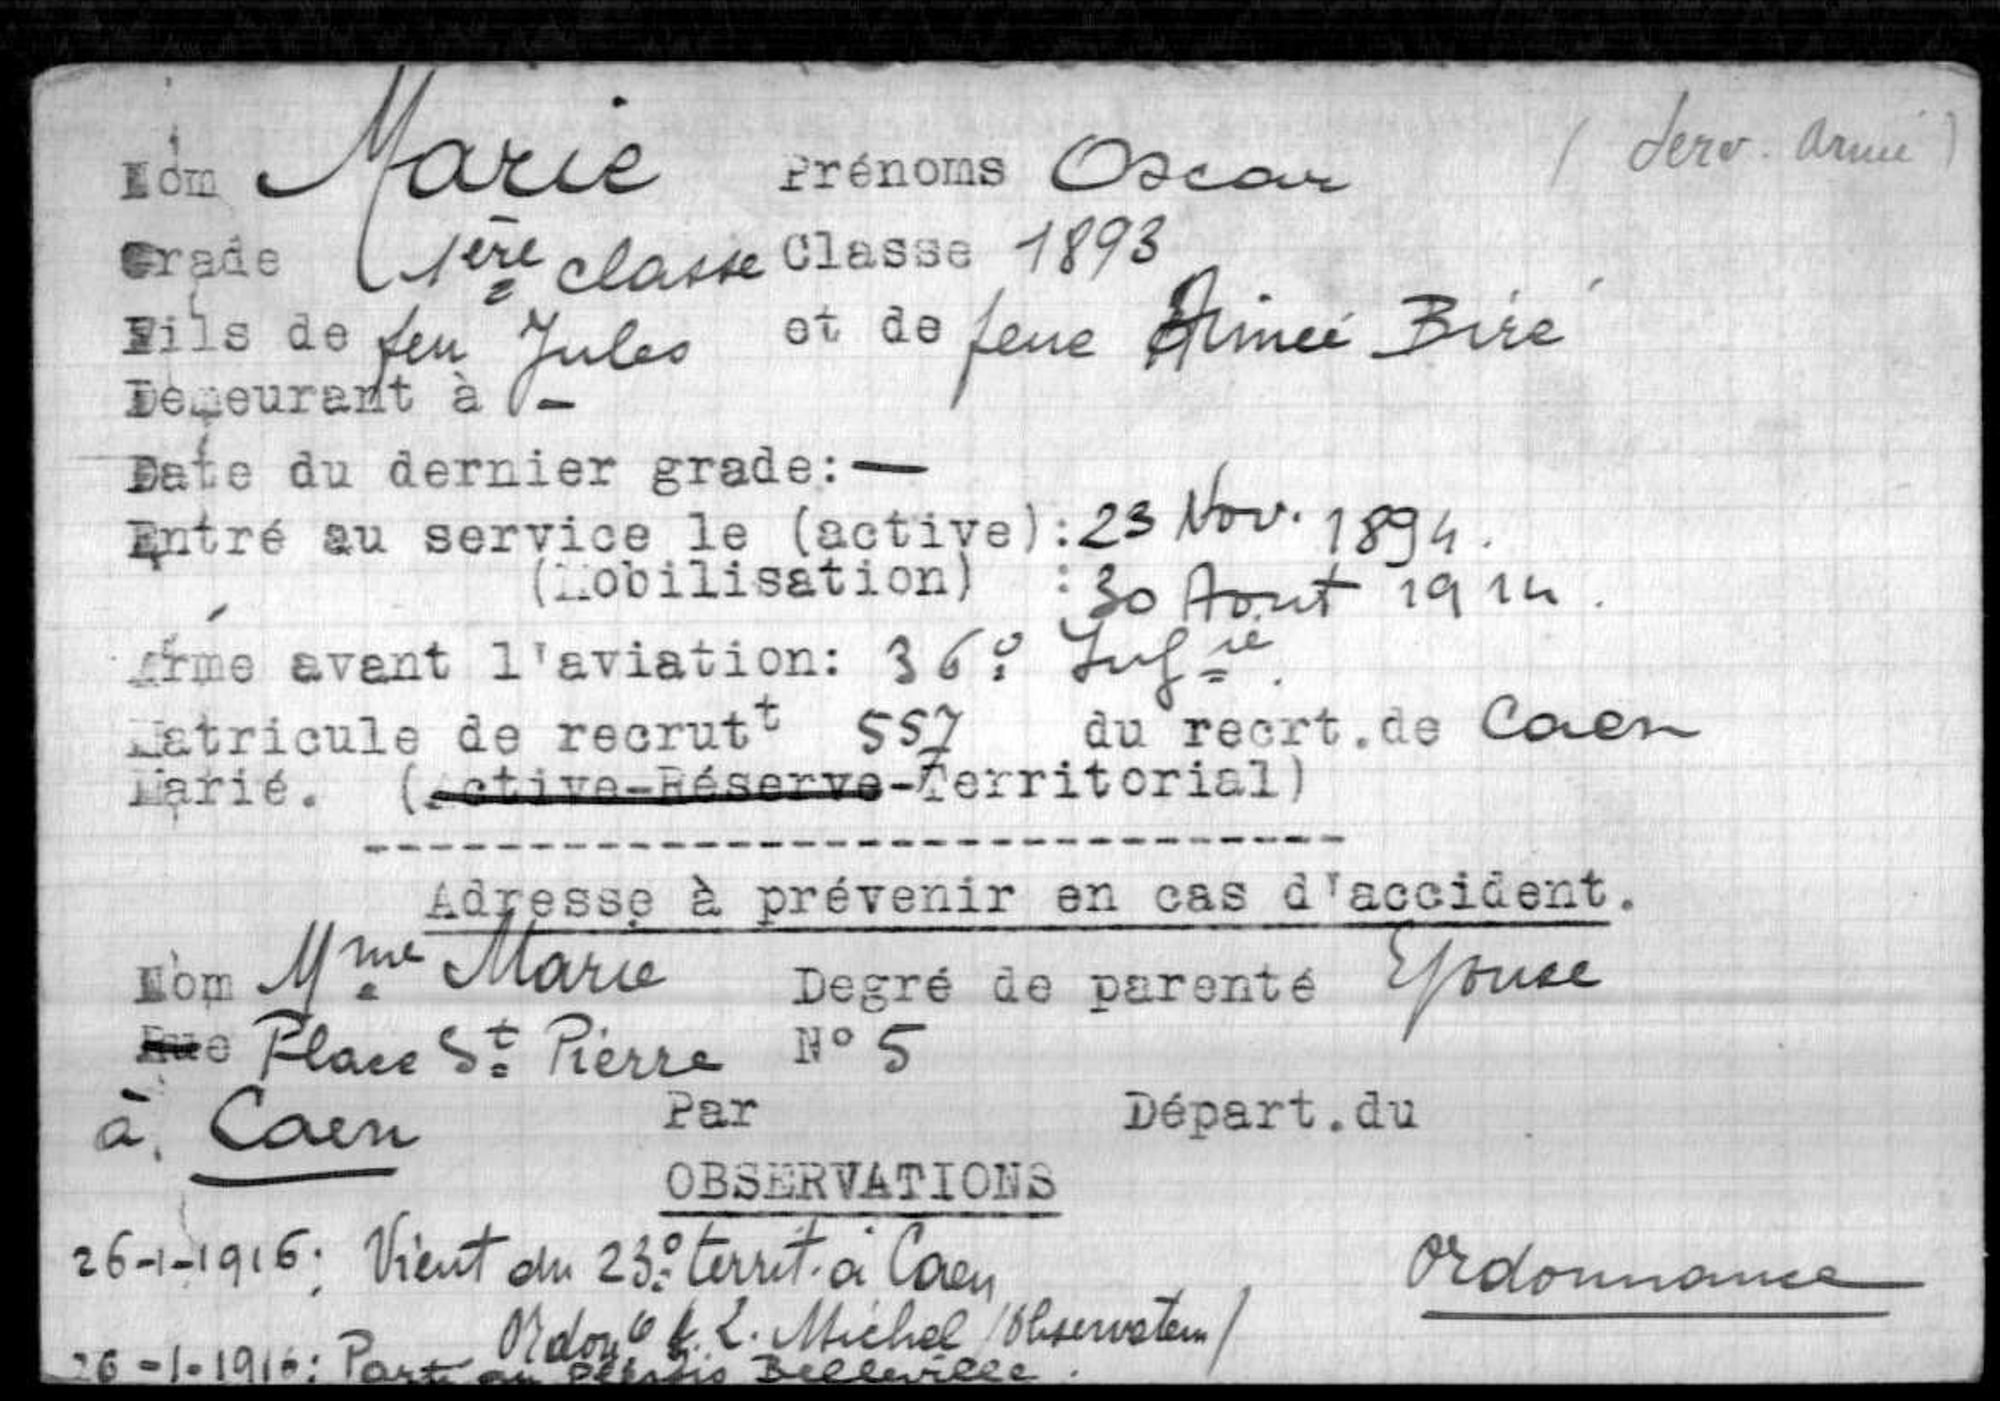 Nom Marie Prénoms Oscar ( Serv. Armé )
Grade 1ère classe Classe 1893
Fils de feu Jules et de feue Aimée Biré
Demeurant à -
Date du dernier grade: —
Entré au service le (active): 23 Nov. 1894.
(Mobilisation) : 30 Aout 1914.
Arme avant l'aviation: 36e Infie.
Matricule de recrutt 557 du recrt.de Caen
Marié. (Active-Réserve-Territorial)
Adresse à prévenir en cas d'accident.
Nom Mme Marie Degré de parenté Epouse
Rue Place St Pierre N° 5
à. Caen Par Départ.du
OBSERVATIONS
26-1-1916: Vient du 23e territ. à Caen Ordonnance
Ordonce L. Michel (Observateur)
26-1-1916: Parti au Plessis Belleville.